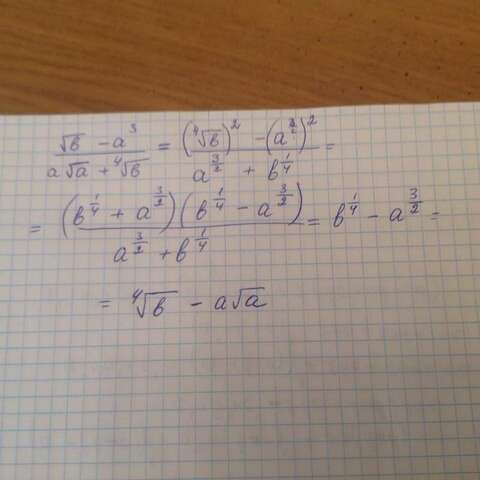 (√в - a³)/(a√a + ⁴√в) = ((⁴√в)² - (a^(3/2))²)/(a^(3/2) + в^(1/4)) =
= ((в^(1/4) + a^(3/2))(в^(1/4) - a^(3/2)))/(a^(3/2) + в^(1/4)) = в^(1/4) - a^(3/2) =
= ⁴√в - a√a